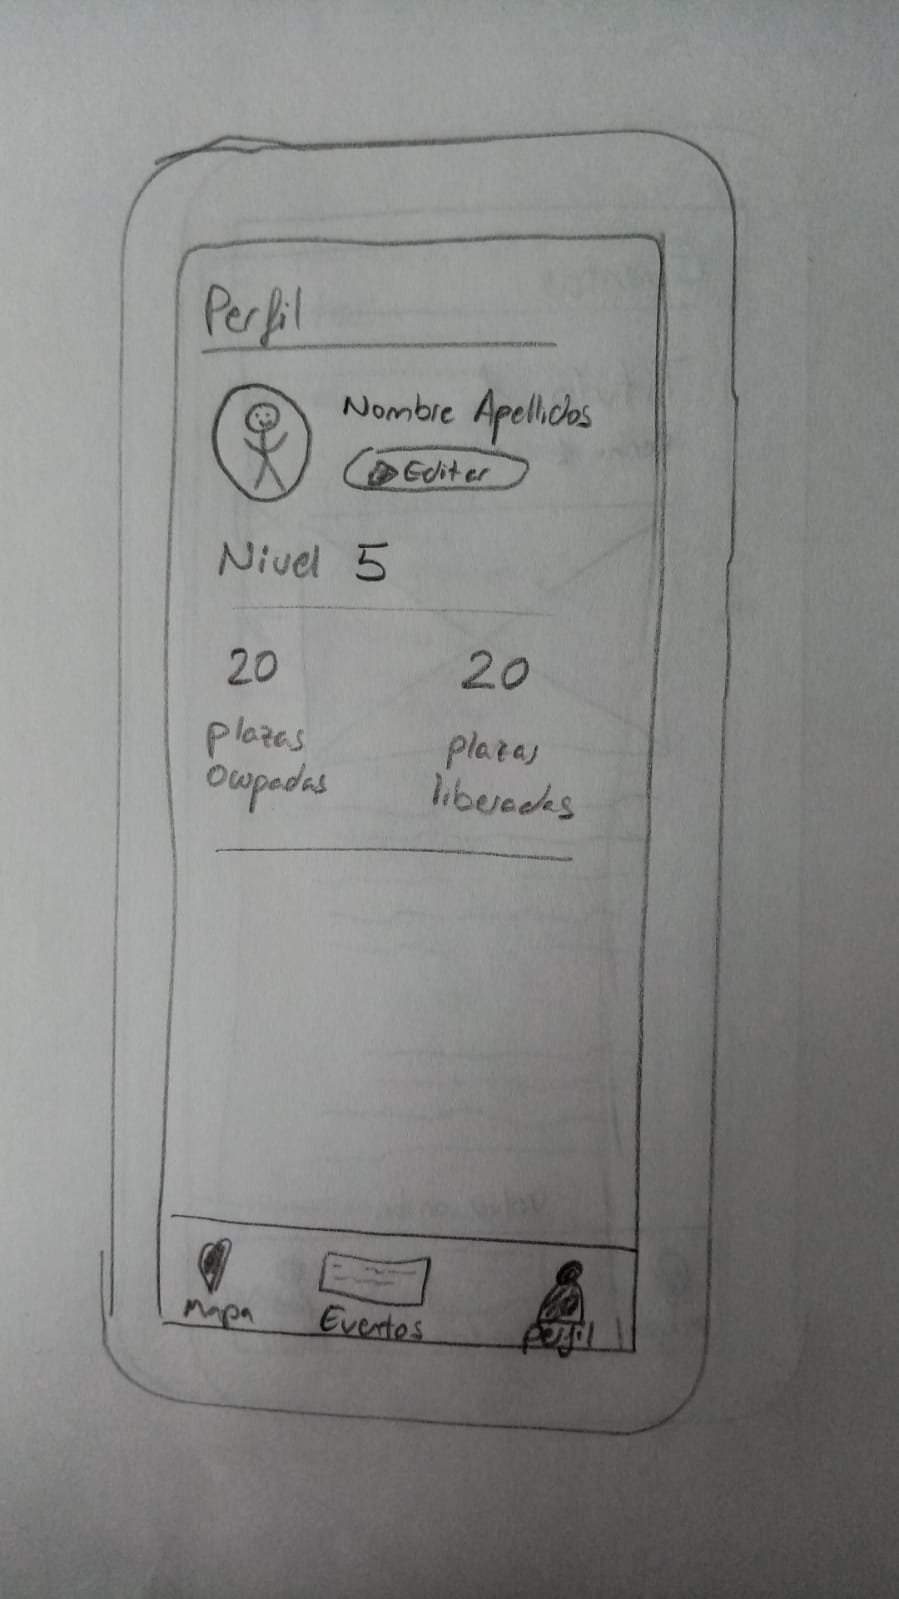 Perfil
Nombre Apellidos
Editar
Nivel 5
20
plazas
ocupadas
20
plazas
liberadas
Mapa
Eventos
perfil